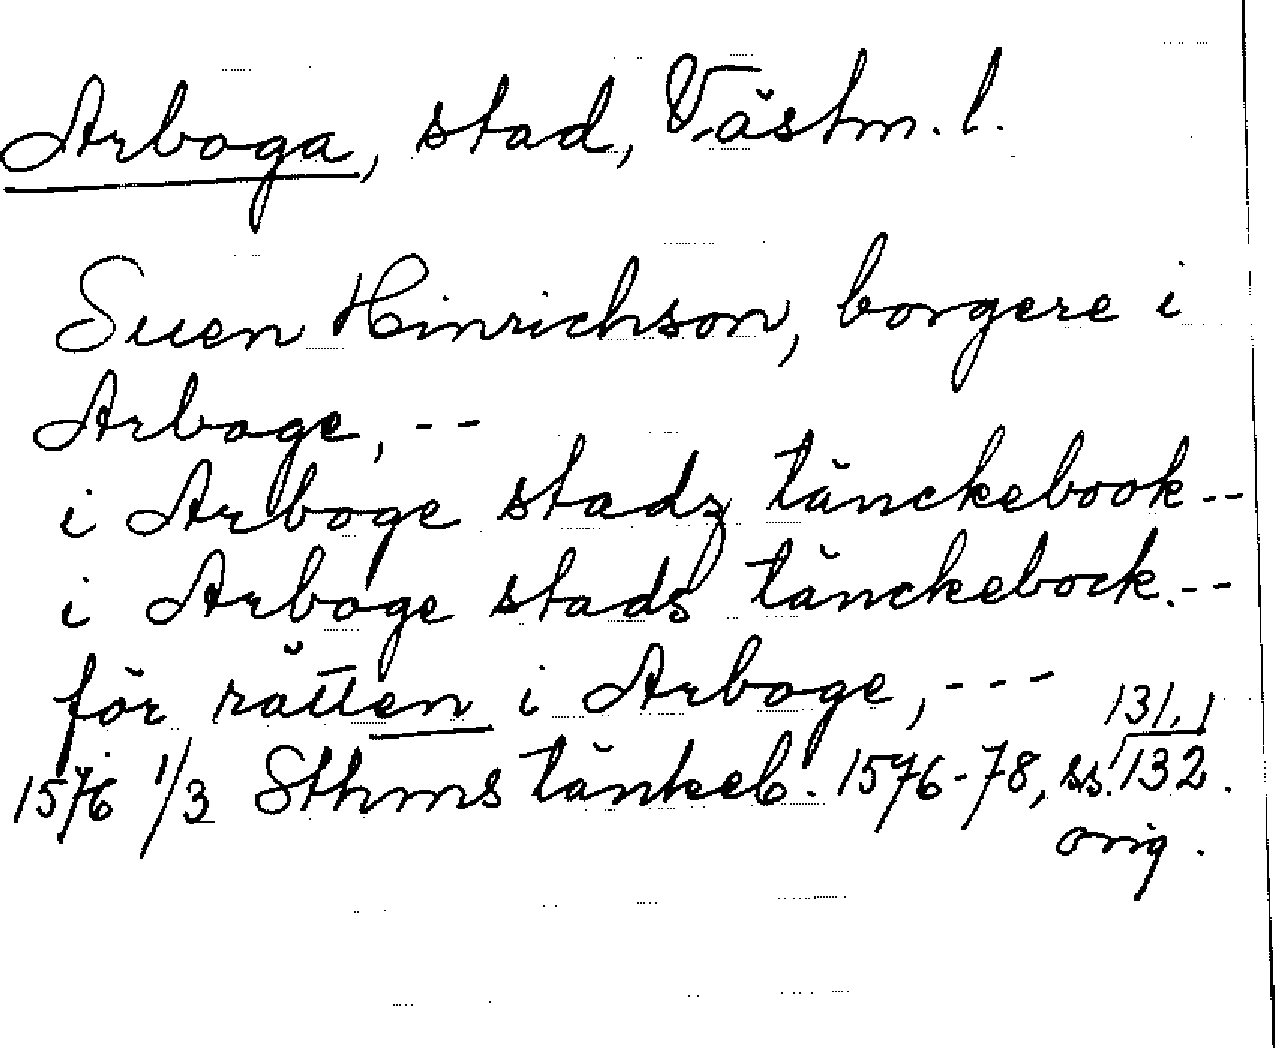 Arboga, stad, Västm. l.
Suen Hinrichson, borgere i
Arboge, --
i Arboge stadz tänckebook--
i Arboge stads tänckebock.--
för rätten i Arboge, ---
131,
1576 1/3 Sthms tänkeb. 1576-78, ss. 132.
orig.